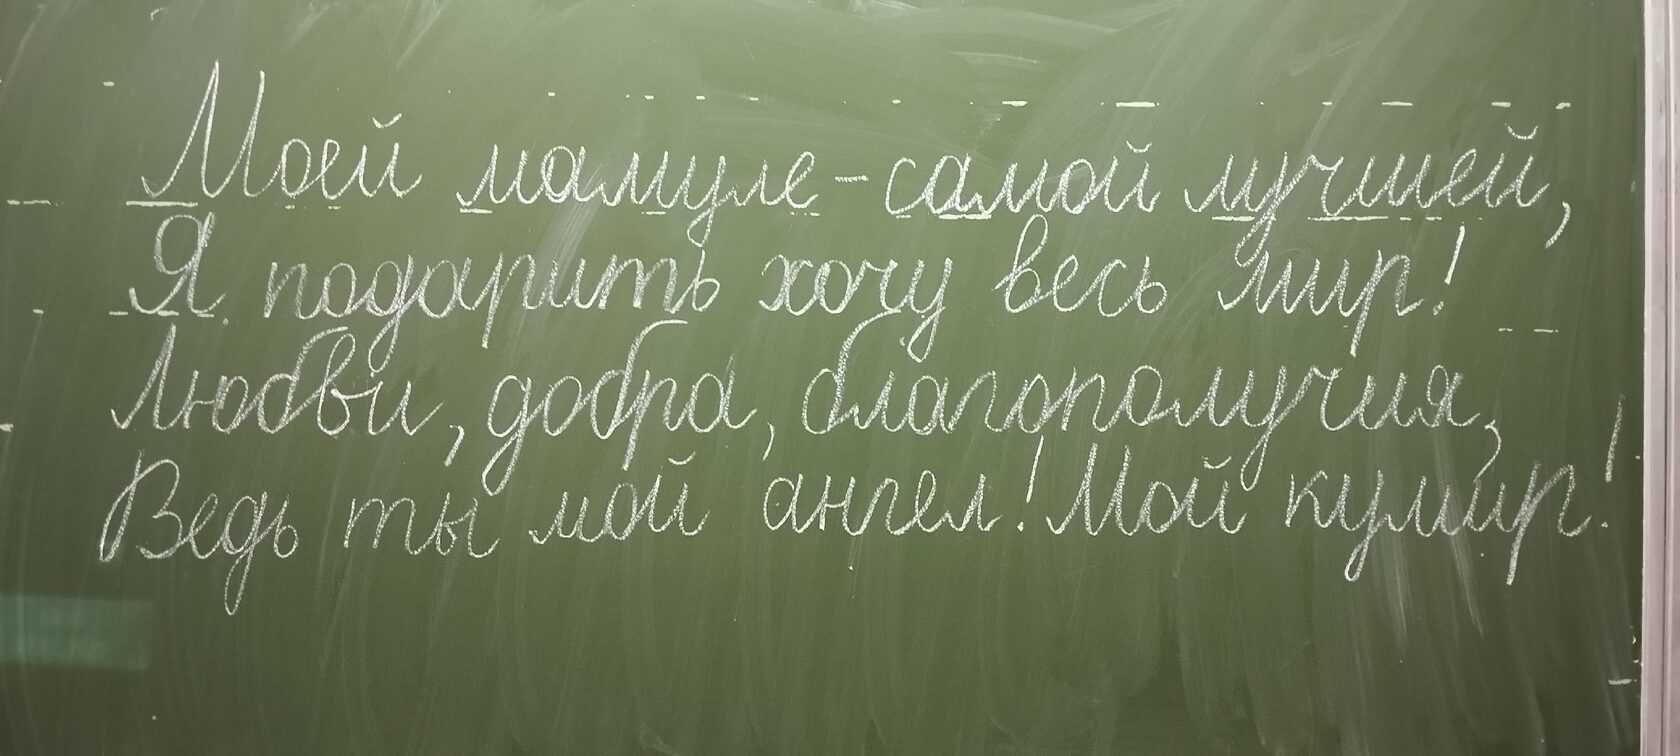 Моей мамуле - самой лучшей,
Я подарить хочу весь мир!
Любви, добра, благополучия,
Ведь ты мой ангел! Мой кумир!